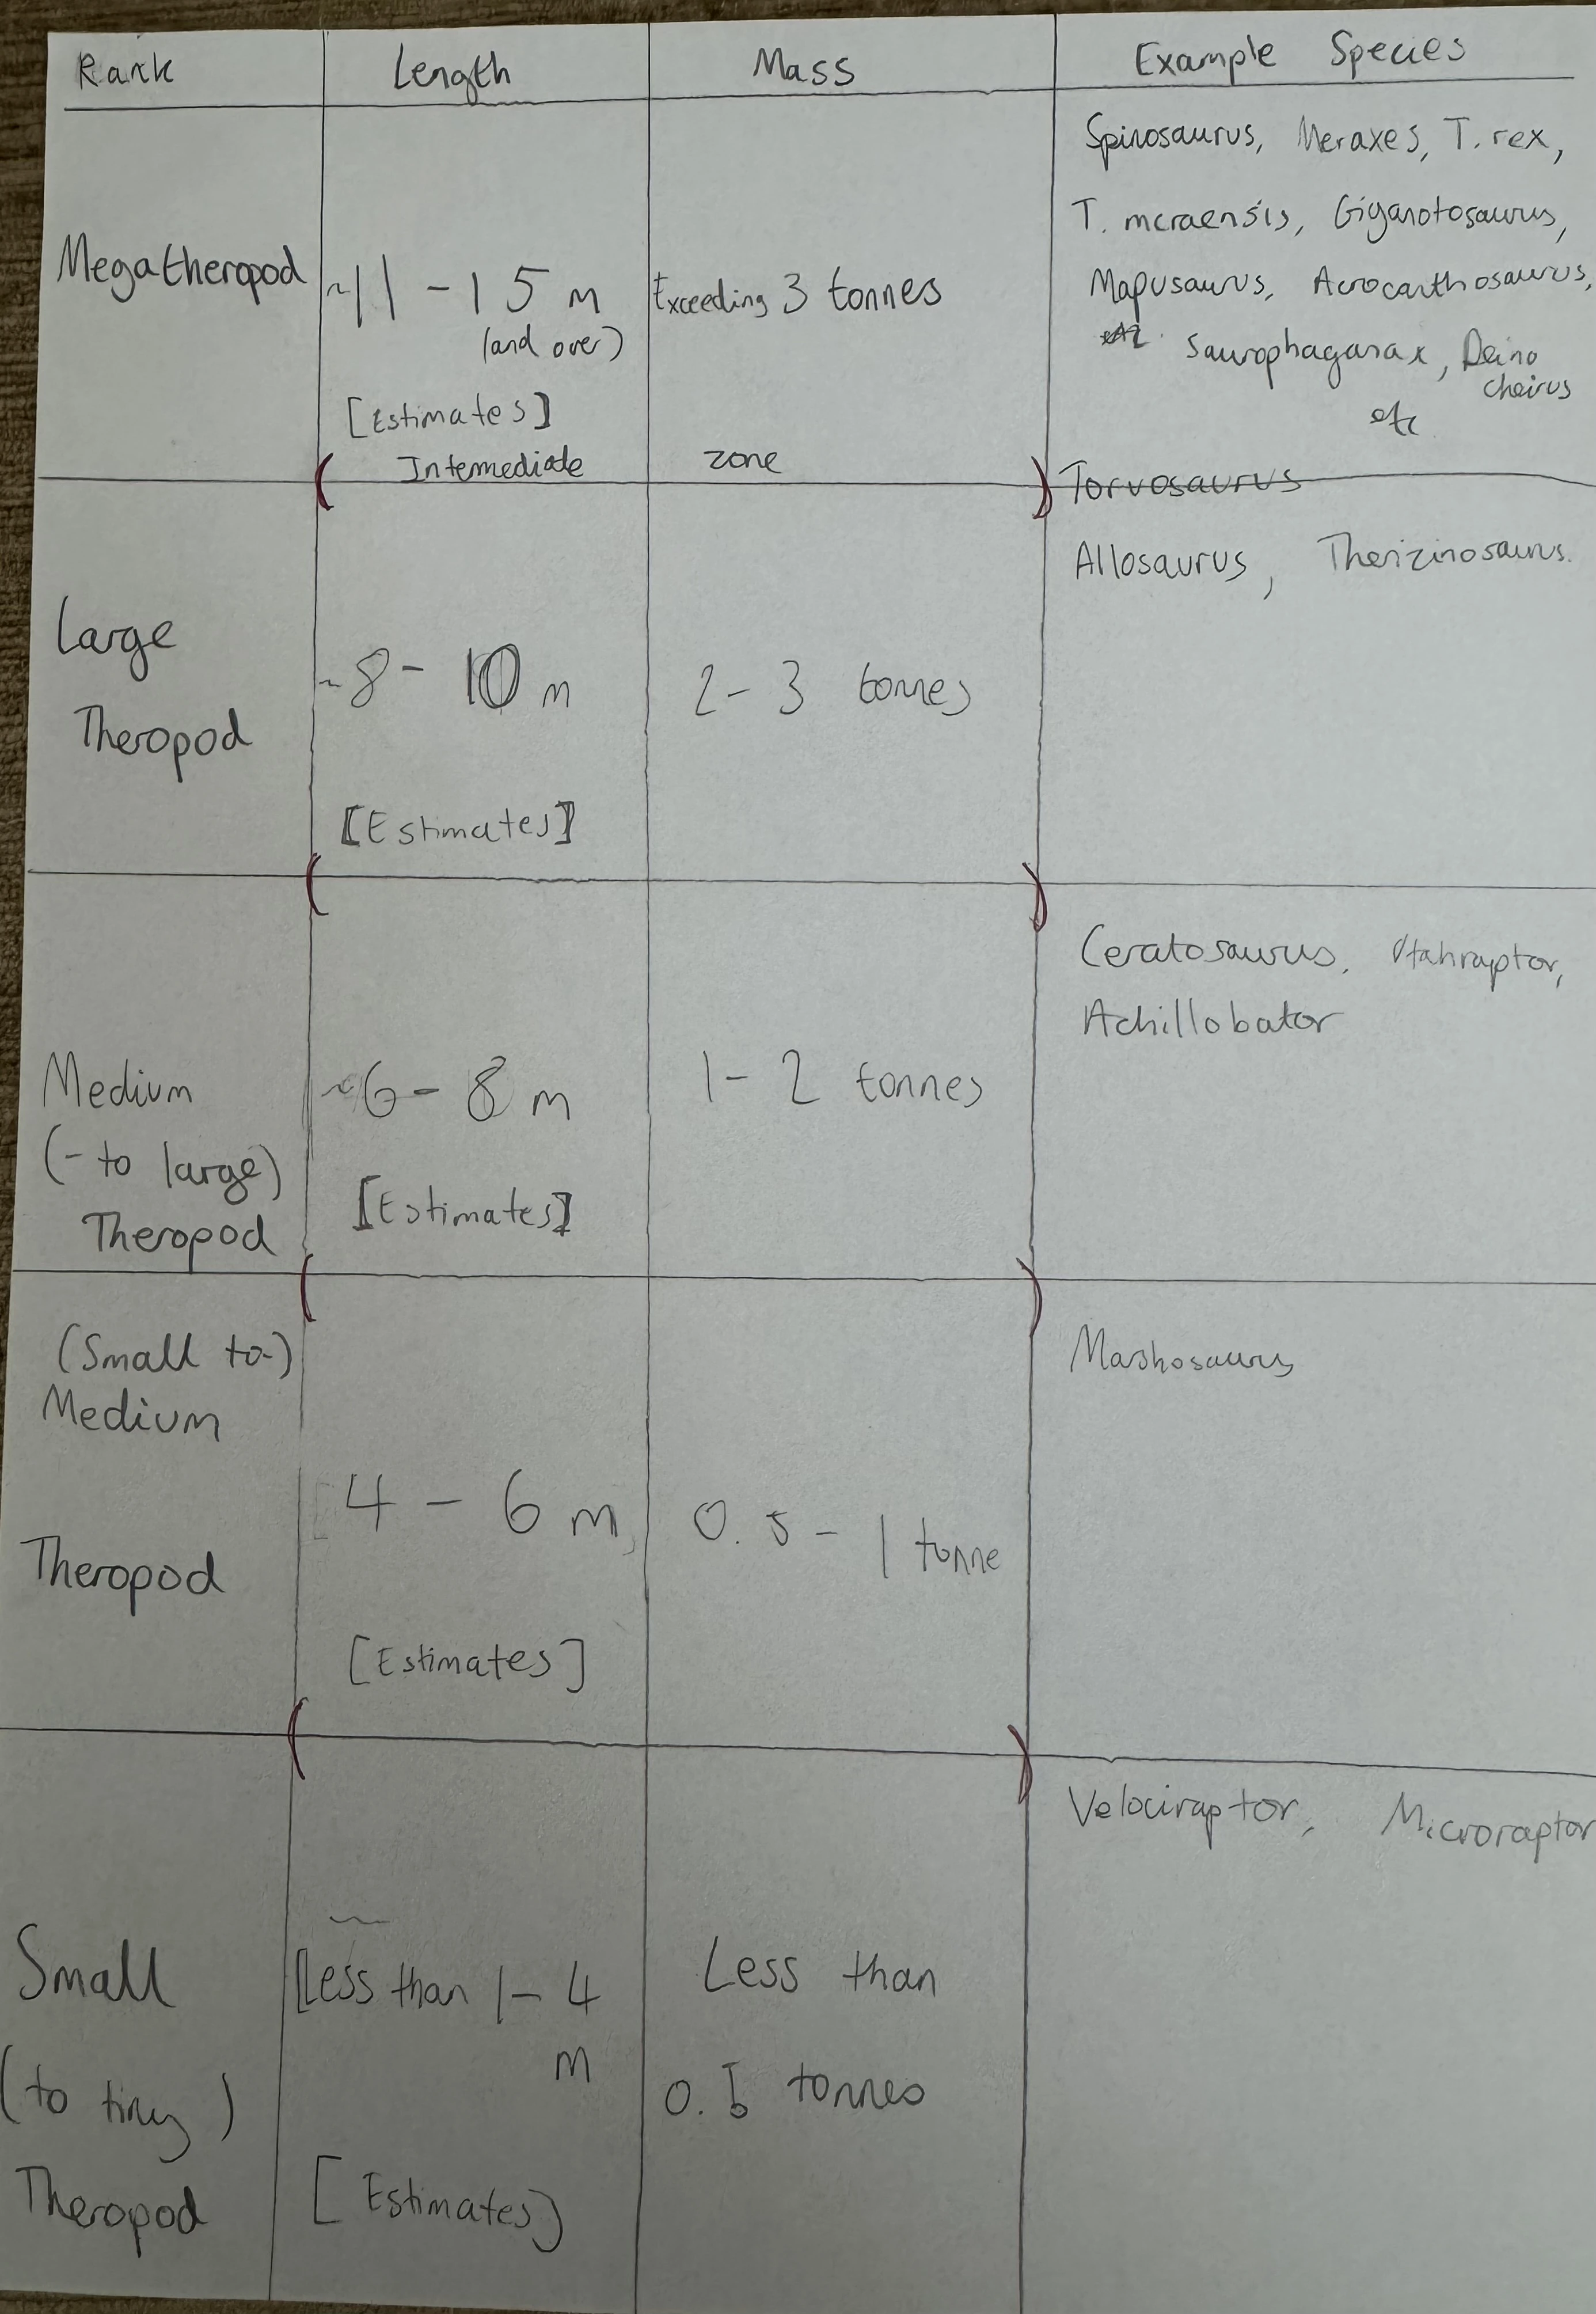 Rank Length Mass Example Species
Spinosaurus, Meraxes, T. rex,
T. mcraensis, Giganotosaurus,
Megatheropod ~11 - 15 m Exceeding 3 tonnes Mapusaurus, Acrocanthosaurus,
(and over) Saurophaganax, Deino
cheirus
[Estimates] etc
Intermediate zone
Torvosaurus
Allosaurus, Therizinosaurus.
Large
Theropod ~8 - 10 m 2 - 3 tonnes
[Estimates]
Ceratosaurus, Utahraptor,
Achillobator
Medium ~6 - 8 m 1 - 2 tonnes
(- to large)
Theropod [Estimates]
(Small to-) Marshosaurus
Medium
4 - 6 m 0.5 - 1 tonne
Theropod
[Estimates]
Velociraptor, Microraptor
~
Small Less than 1 - 4 Less than
m
(to tiny) 0.5 tonnes
Theropod [Estimates]